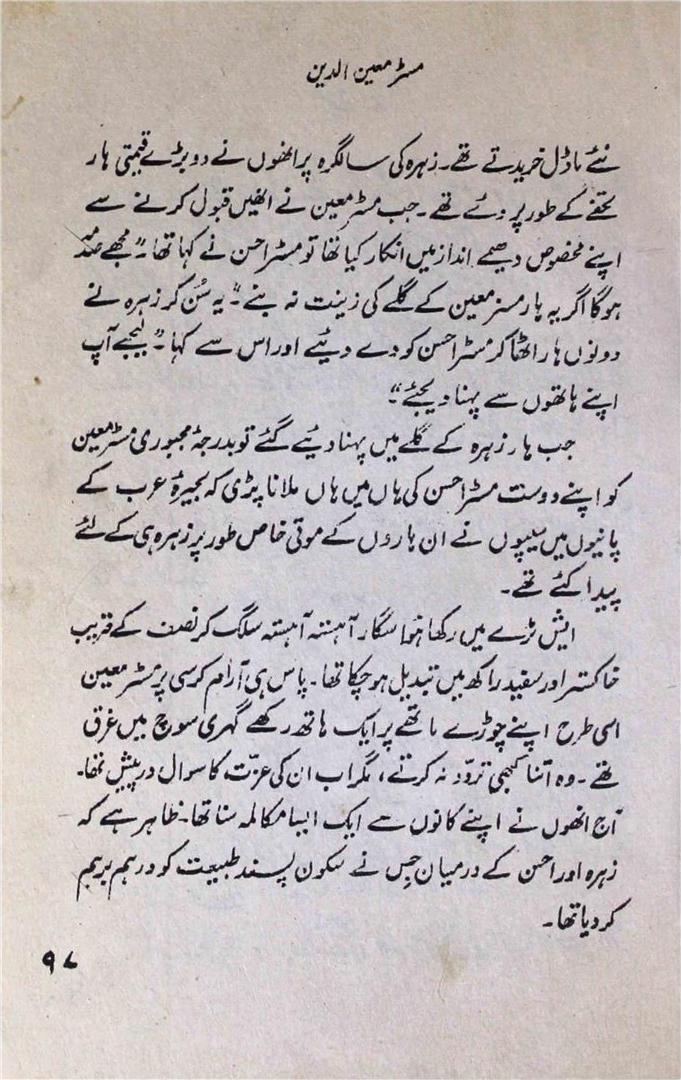 مسٹر معین الدین
نئے ماڈل خریدتے تھے۔ زہرہ کی سالگرہ پر انھوں نے دو بڑے قیمتی ہار
تحفے کے طور پر دئے تھے۔ جب مسٹر معین نے انھیں قبول کرنے سے
اپنے مخصوص دھیمے انداز میں انکار کیا تھا تو مسٹر احسن نے کہا تھا۔ "مجھے صدمہ
ہوگا اگر یہ ہار مسز معین کے گلے کی زینت نہ بنے۔" یہ سُن کر زہرہ نے
دونوں ہار اٹھا کر مسٹر احسن کو دے دیئیے اور اس سے کہا۔ "لیجیے آپ
اپنے ہاتھوں سے پہنا دیجئے"۔
جب ہار زہرہ کے گلے میں پہنا دیئیے گئے تو بدرجۂ مجبوری مسٹر معین
کو اپنے دوست مسٹر احسن کی ہاں میں ہاں ملانا پڑی کہ بحیرۂ عرب کے
پانیوں میں سیپوں نے ان ہاروں کے موتی خاص طور پر زہرہ ہی کے لئے
پیدا کئے تھے۔
ایش ٹرے میں رکھا ہُوا سگار آہستہ آہستہ سلگ کر نصف کے قریب
خاکستر اور سفید راکھ میں تبدیل ہو چکا تھا۔ پاس ہی آرام کرسی پر مسٹر معین
اسی طرح اپنے چوڑے ماتھے پر ایک ہاتھ رکھے گہری سوچ میں غرق
تھے۔ وہ اتنا کبھی تردّد نہ کرتے، مگر اب ان کی عزّت کا سوال درپیش تھا۔
آج انھوں نے اپنے کانوں سے ایک ایسا مکالمہ سنا تھا۔ ظاہر ہے کہ
زہرہ اور احسن کے درمیان جس نے سکون پسند طبیعت کو درہم برہم
کر دیا تھا۔
۹۷